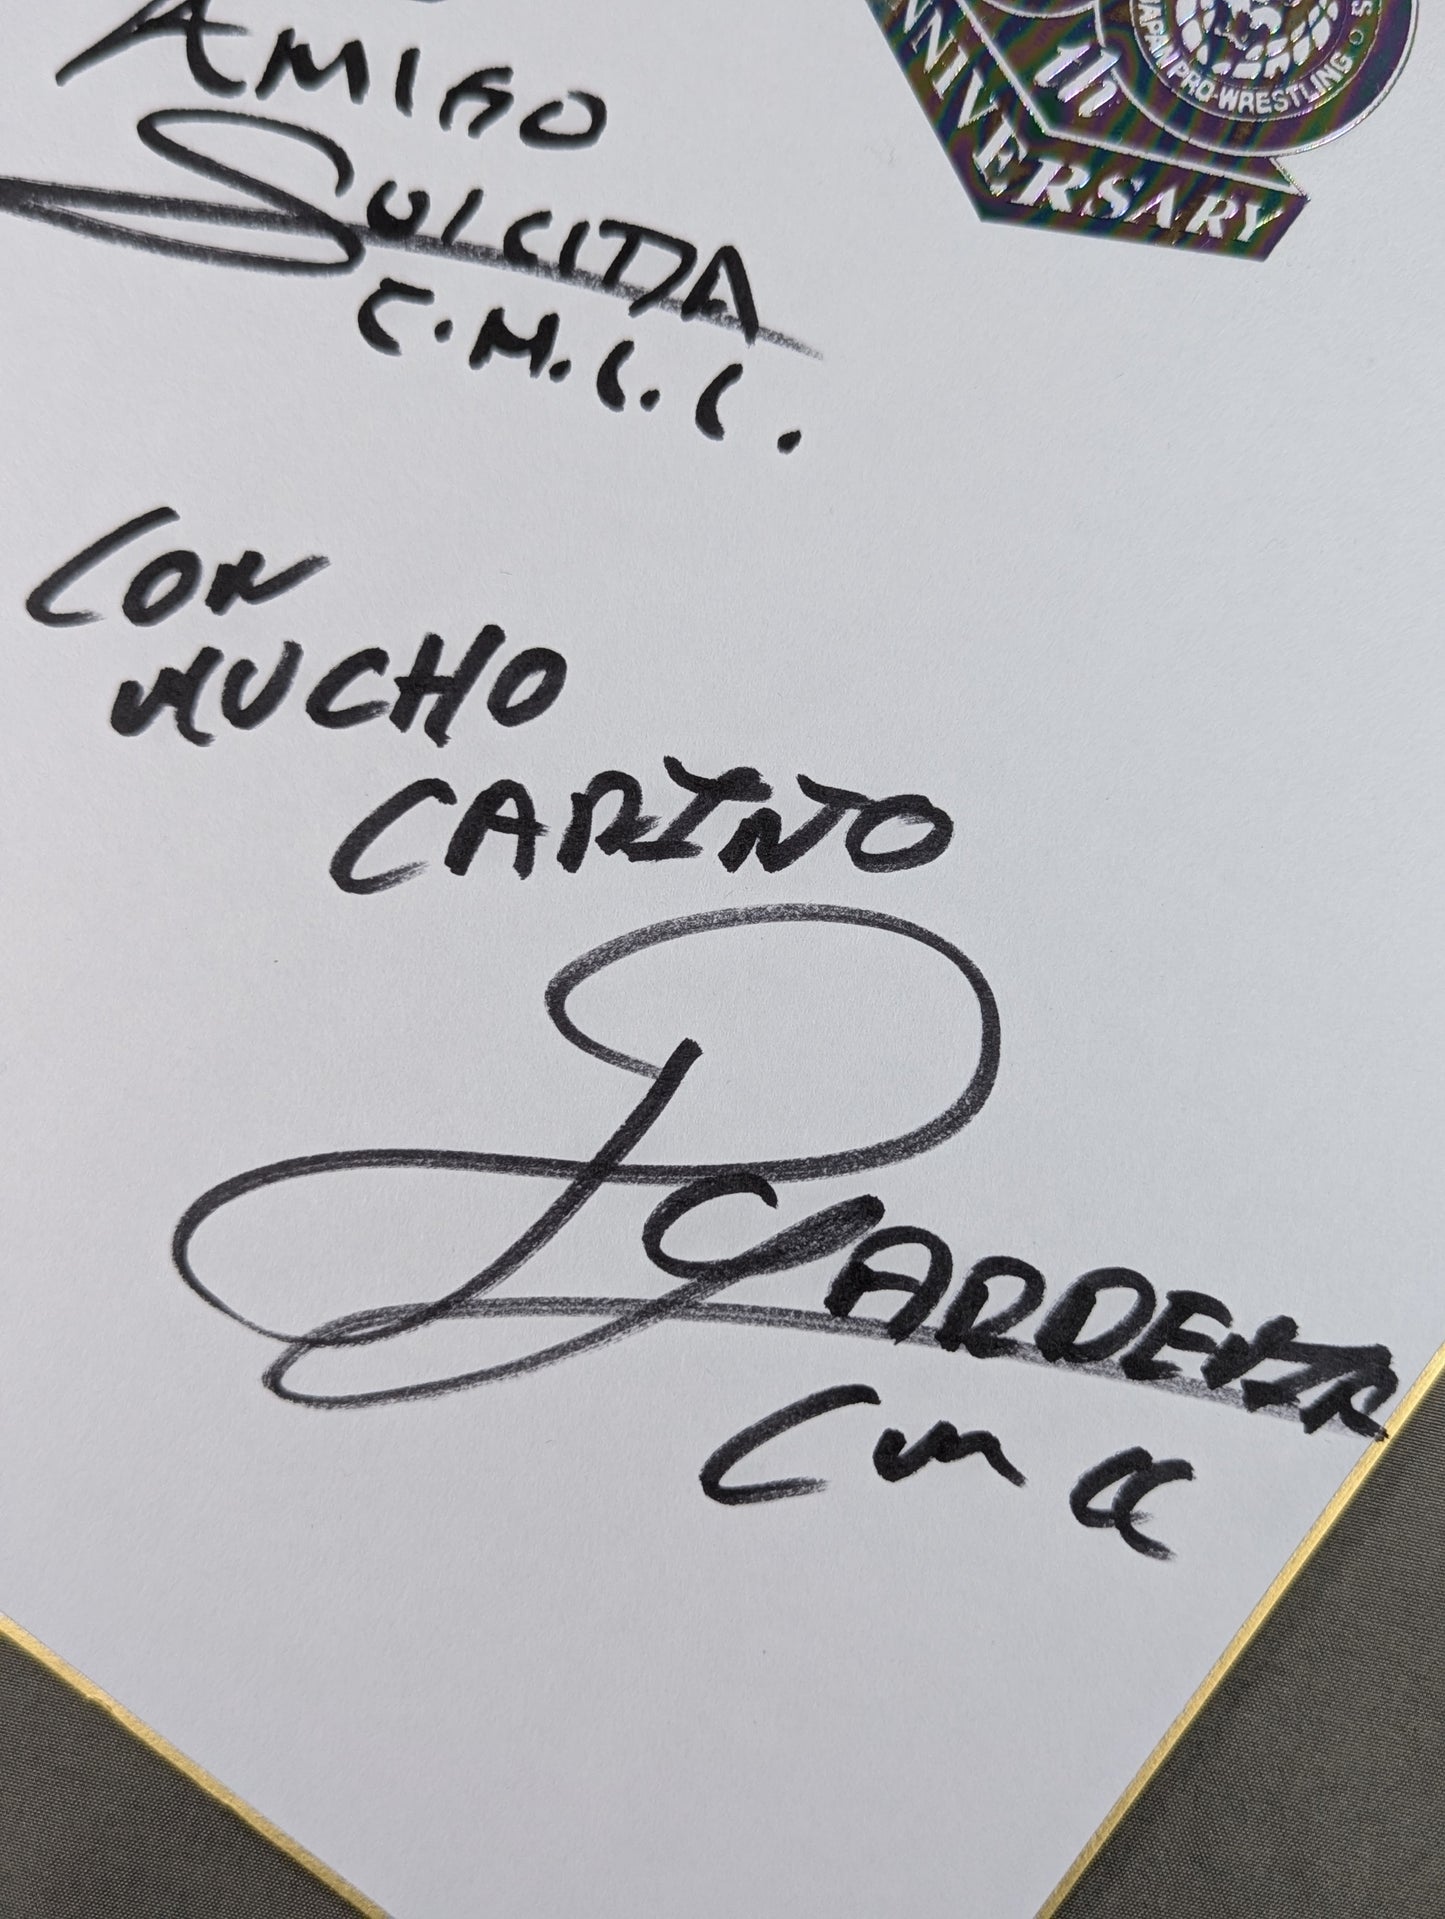 AMIGO
SUICIDA
C.M.L.L.
50th
ANNIVERSARY
JAPAN PRO-WRESTLING
CON
MUCHO
CARINO
CMLL